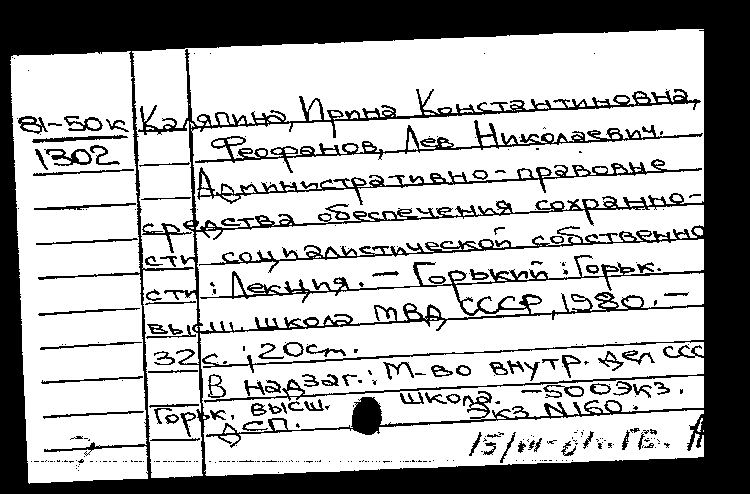 81-50к Каляпина, Ирина Константиновна,
1302 Феофанов, Лев Николаевич.
Административно-правовые
средства обеспечения сохранно-
сти социалистической собственно
сти: Лекция. — Горький: Горьк.
высш. школа МВД СССР, 1980. —
32 с.; 20 см.
В надзаг.: М-во внутр. дел ССС
Горьк. высш. школа. — 500 экз.
ДСП. Экз. N160.
15/III-81г. ГБ. А